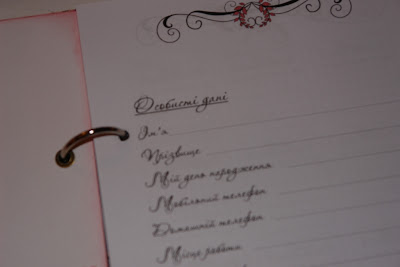 Особисті дані
Ім'я
Прізвище
Мій день народження
Мобільний телефон
Домашній телефон
Місце роботи